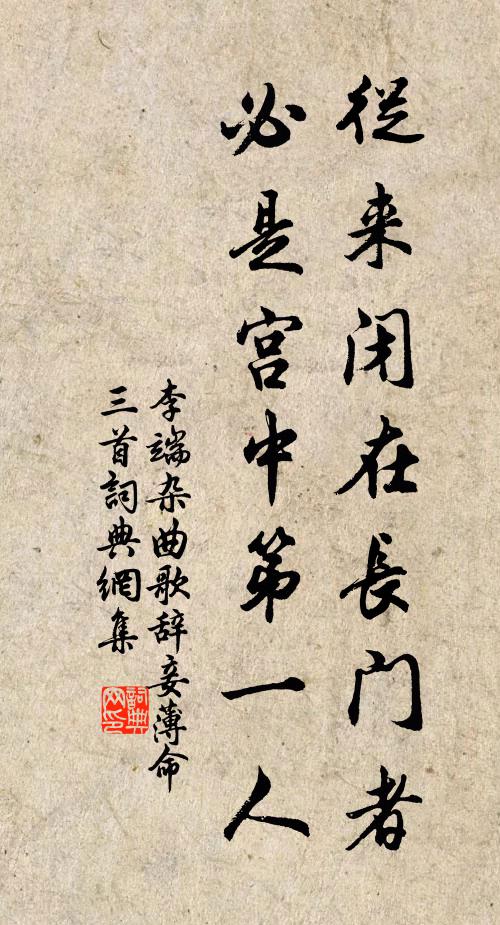 從来闭在長門者
必是宫中第一人
李端杂曲歌辞妾薄命
三首詞典網集
詞典
网印